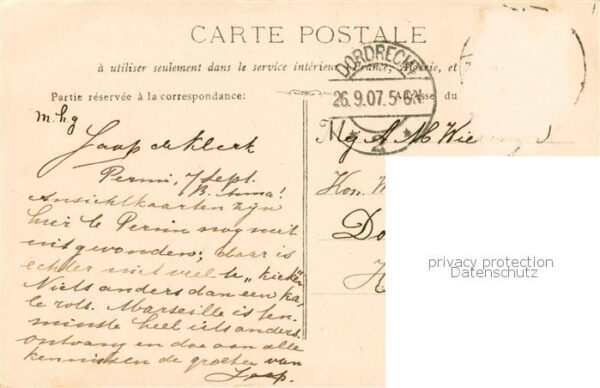 CARTE POSTALE
à utiliser seulement dans le service intérieur (France, Algérie, et
Partie réservée à la correspondance:
Adresse du
DORDRECHT
26.9.07.5-6N
m.h.g
Jaap de Klerk
Perim, 7 Sept.
B. Anna!
Ansichtkaarten zijn
hier te Perim nog niet
uitgevonden; daar is
echter niet veel te "kieken
Niets anders dan een ka-
le rots. Marseille is ten-
minste heel iets anders.
ontvang en doe aan alle
kennissen de groeten van
Jaap.
Mej A M
Kon. W
Do
H
privacy protection
Datenschutz